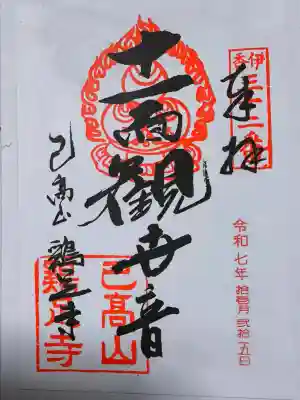 奉拝
十一面観世音
己高山 鶏足寺
令和七年 拾壱月 弐拾五日
己高山
鶏足寺